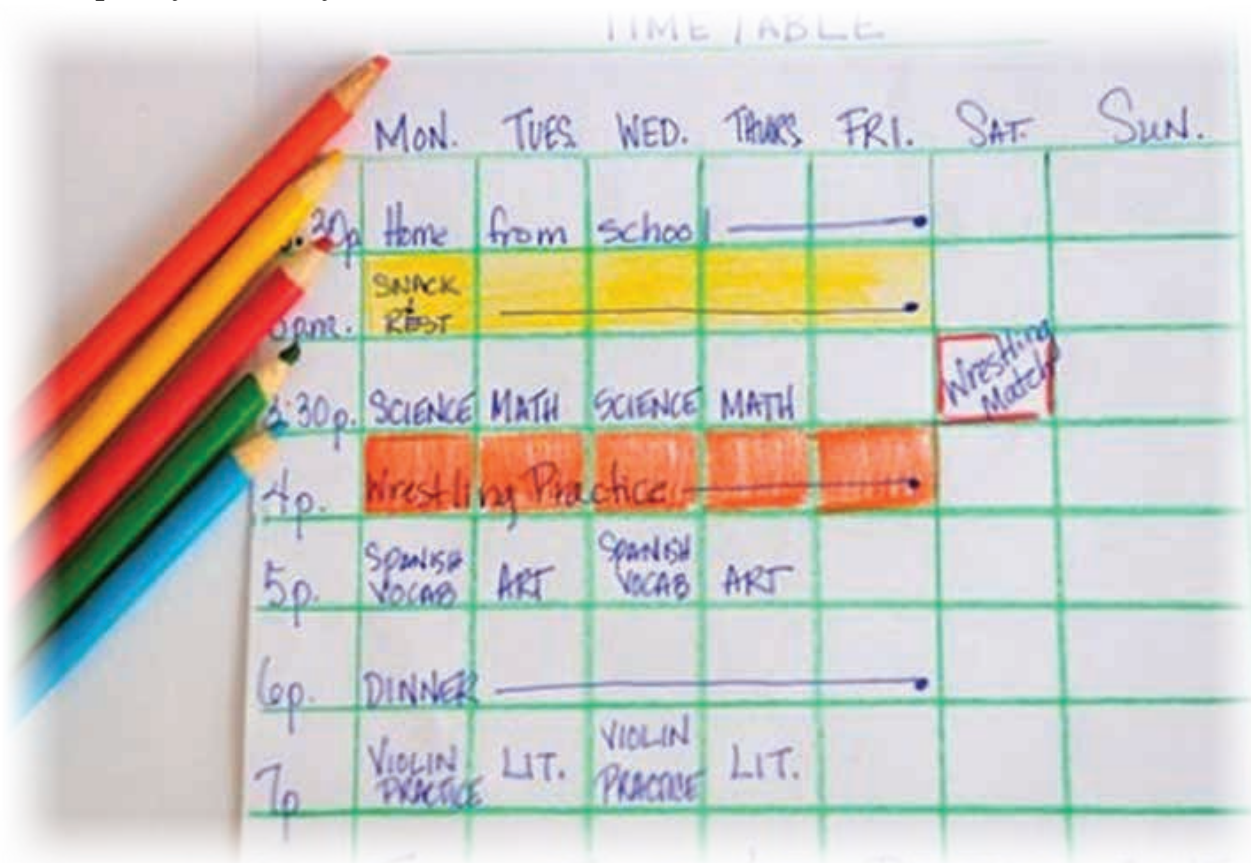 TIME TABLE
MON. TUES WED. THURS FRI. SAT. SUN.
:30p Home from school
SNACK
&
REST
pm.
Wrestling
Match
3:30p. SCIENCE MATH SCIENCE MATH
4p. Wrestling Practice
5p. SPANISH VOCAB ART SPANISH VOCAB ART
6p. DINNER
7p VIOLIN PRACTICE LIT. VIOLIN PRACTICE LIT.